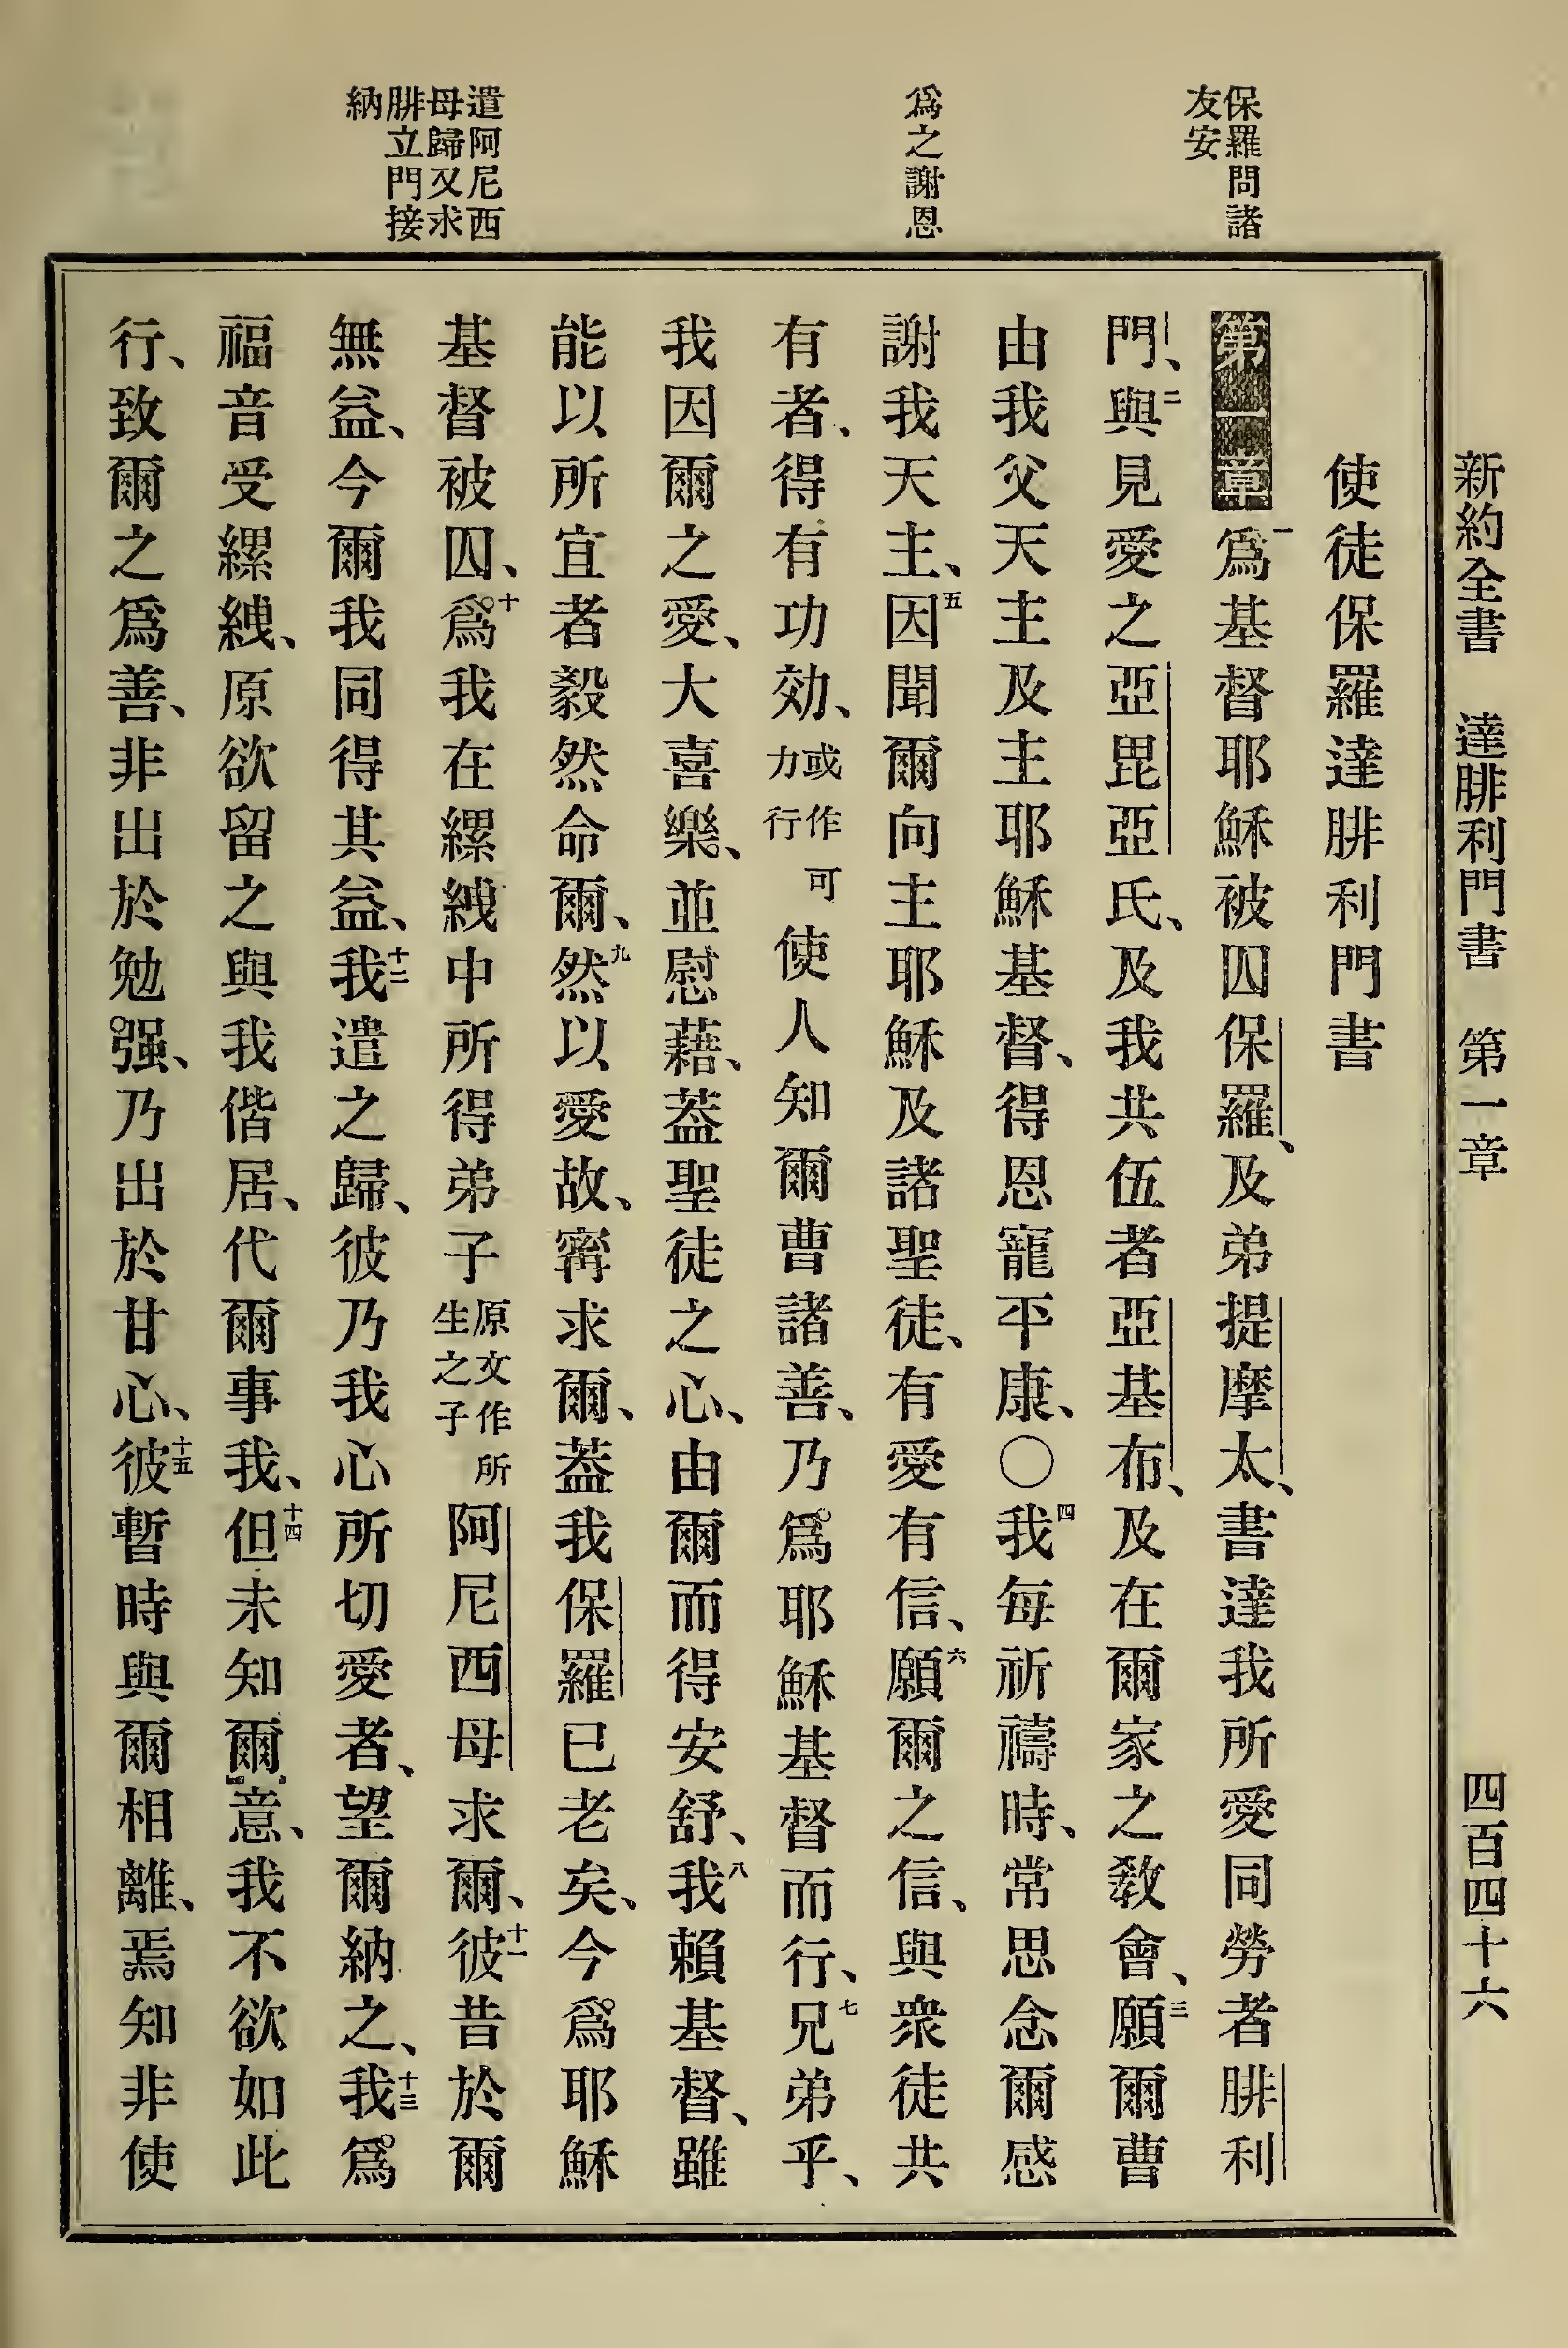 新約全書 達腓利門書 第一章 四百四十六
保羅問諸
友安
爲之謝恩
遣阿尼西
母歸又求
腓立門接
納
使徒保羅達腓利門書
第一章 一爲基督耶穌被囚保羅、及弟提摩太、書達我所愛同勞者腓利
門、二與見愛之亞毘亞氏、及我共伍者亞基布、及在爾家之敎會、三願爾曹
由我父天主及主耶穌基督、得恩寵平康、〇四我每祈禱時、常思念爾感
謝我天主、五因聞爾向主耶穌及諸聖徒、有愛有信、六願爾之信、與衆徒共
有者、得有功効、或作可力行使人知爾曹諸善、乃爲耶穌基督而行、七兄弟乎、
我因爾之愛、大喜樂、並慰藉、蓋聖徒之心、由爾而得安舒、八我賴基督、雖
能以所宜者毅然命爾、九然以愛故、寗求爾、蓋我保羅已老矣、今爲耶穌
基督被囚、十爲我在縲絏中所得弟子原文作所生之子阿尼西母求爾、十一彼昔於爾
無益、今爾我同得其益、十二我遣之歸、彼乃我心所切愛者、望爾納之、十三我爲
福音受縲絏、原欲留之與我偕居、代爾事我、十四但未知爾意、我不欲如此
行、致爾之爲善、非出於勉强、乃出於甘心、十五彼暫時與爾相離、焉知非使